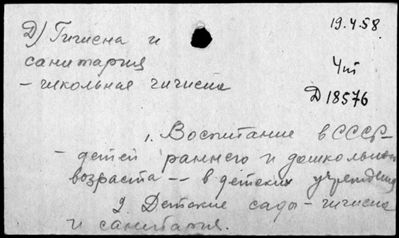 Д) Гигиена и
санитария
- школьная гигиена
19.4.58.
Чит
Д 18576
1. Воспитание в СССР -
- детей раннего и дошкольного
возраста -- в детских учрежд
2. Детские сады - гигиена
и санитария.